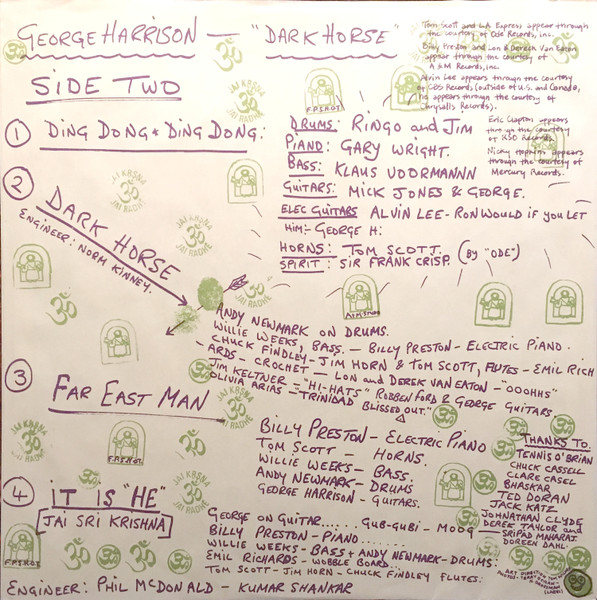 GEORGE HARRISON — "DARK HORSE"
SIDE TWO
Tom Scott and L.A. Express appear through
the courtesy of Ode Records, inc.
Billy Preston and Lon & Derrek Van Eaton
appear through the courtesy of
A & M Records, inc.
Alvin Lee appears through the courtesy
of CBS Records (outside of U.S. and Canada,
he appears through the courtesy of
Chrysalis Records).
Eric Clapton appears
through the courtesy
of RSO Records.
Nicky Hopkins appears
through the courtesy of
Mercury Records.
① DING DONG * DING DONG:
DRUMS: RINGO and JIM
PIANO: GARY WRIGHT.
BASS: KLAUS VOORMANN
GUITARS: MICK JONES & GEORGE.
ELEC GUITARS ALVIN LEE - RON WOULD IF YOU LET
HIM:- GEORGE H:
HORNS: TOM SCOTT. (BY "ODE")
SPIRIT: SIR FRANK CRISP.
② DARK HORSE
ENGINEER: NORM KINNEY.
ANDY NEWMARK ON DRUMS.
WILLIE WEEKS, BASS. — BILLY PRESTON - ELECTRIC PIANO.
CHUCK FINDLEY - JIM HORN & TOM SCOTT, FLUTES - EMIL RICH
-ARDS - CROCHET — LON and DEREK VAN EATON - "OOOHHS"
JIM KELTNER - "HI-HATS" ROBBEN FORD & GEORGE GUITARS
OLIVIA ARIAS - "TRINIDAD BLISSED OUT."
③ FAR EAST MAN
BILLY PRESTON - ELECTRIC PIANO
TOM SCOTT - HORNS.
WILLIE WEEKS - BASS.
ANDY NEWMARK - DRUMS
GEORGE HARRISON - GUITARS.
THANKS TO
TENNIS O'BRIAN
CHUCK CASSELL
CLARE CASEL
BHASKAR
TED DORAN
JACK KATZ
JOHNATHAN CLYDE
DEREK TAYLOR and
SRIPAD MAHARAJ
DOREEN DAHL.
④ IT IS "HE"
JAI SRI KRISHNA
GEORGE ON GUITAR..... GUB-GUBI - MOOG
BILLY PRESTON - PIANO.......
WILLIE WEEKS - BASS + ANDY NEWMARK - DRUMS:
EMIL RICHARDS - WOBBLE BOARD...
TOM SCOTT - JIM HORN - CHUCK FINDLEY FLUTES:
ENGINEER: PHIL McDONALD - KUMAR SHANKAR
JAI KRSNA
ॐ
JAI RADHE
F.P.S.H.O.T.